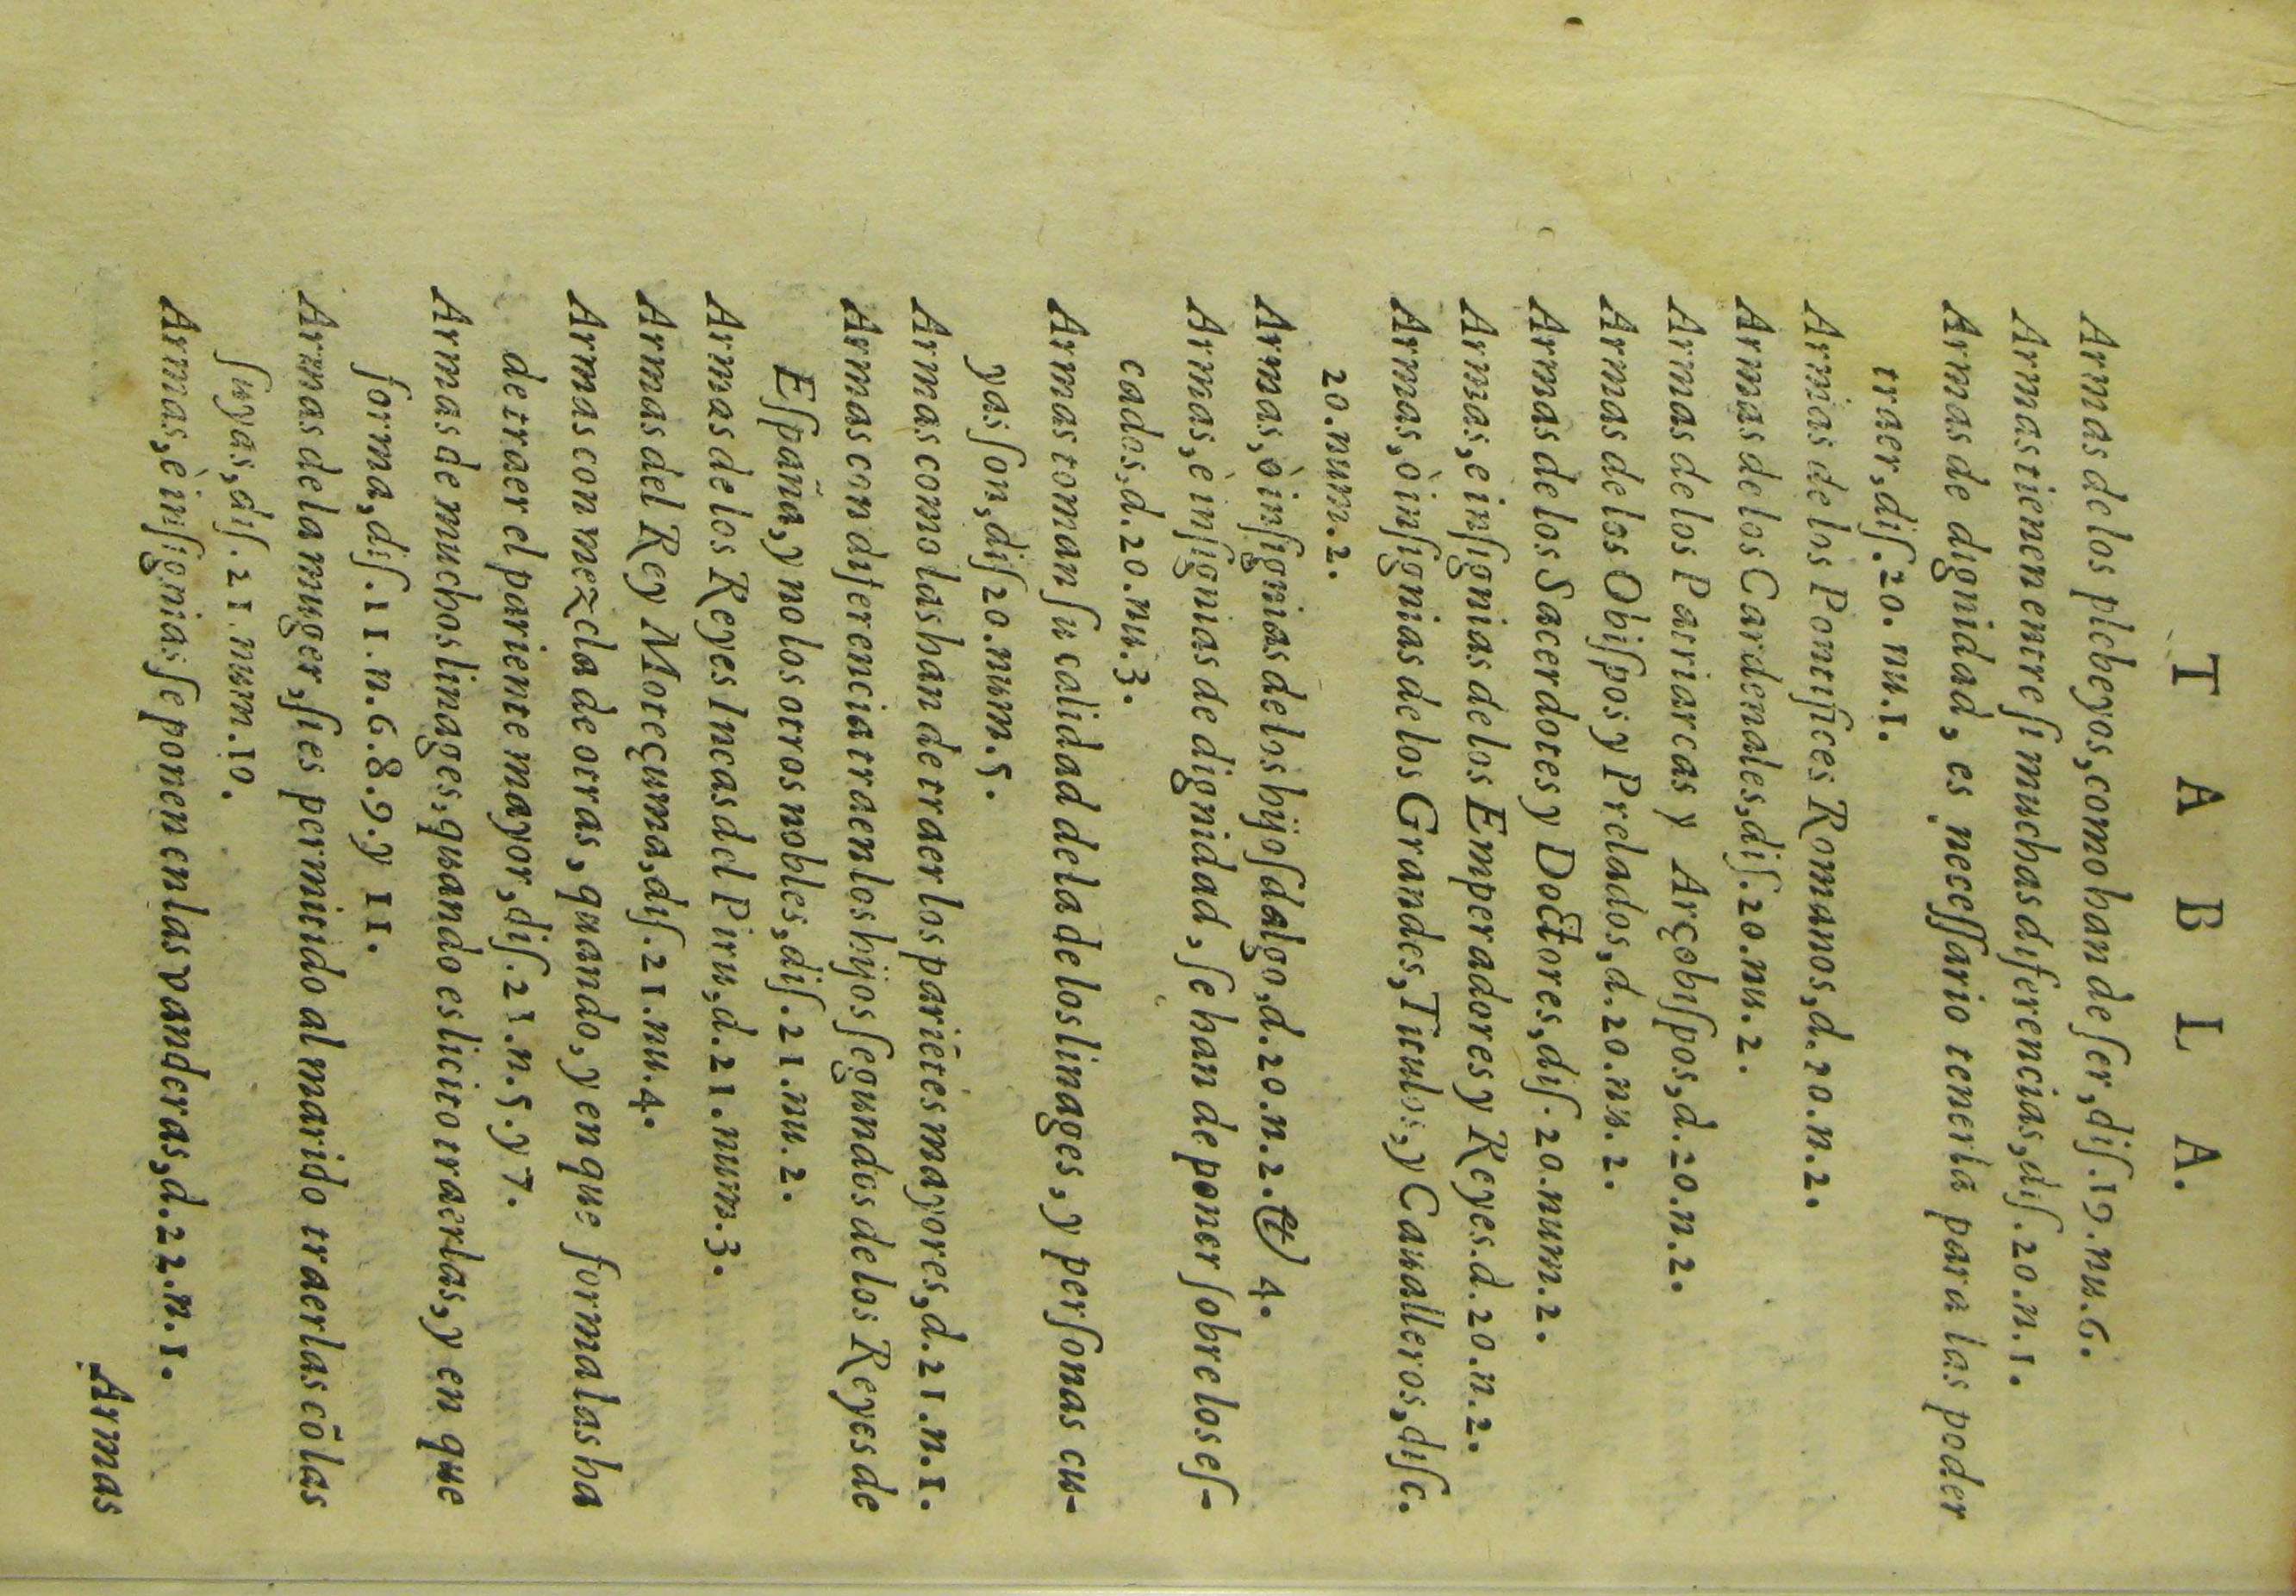 TABLA.
Armas de los plebeyos, como han de ſer, diſ. 19. nu. 6.
Armas tienen entre ſi muchas diferencias, diſ. 20. n. 1.
Armas de dignidad, es neceſſario tenerla para las poder
traer, diſ. 20. nu. 1.
Armas de los Pontifices Romanos, d. 20. n. 2.
Armas de los Cardenales, diſ. 20. nu. 2.
Armas de los Patriarcas y Arçobiſpos, d. 20. n. 2.
Armas de los Obiſpos y Prelados, d. 20. nu. 2.
Armas de los Sacerdotes y Doctores, diſ. 20. num. 2.
Armas, e inſignias de los Emperadores y Reyes. d. 20. n. 2.
Armas, ò inſignias de los Grandes, Titulos, y Caualleros, diſc.
20. num. 2.
Armas, ò inſignias de los hijoſdalgo, d. 20. n. 2. & 4.
Armas, è inſignias de dignidad, ſe han de poner ſobre los eſ-
cados, d. 20. nu. 3.
Armas toman ſu calidad de la de los linages, y perſonas cu-
yas ſon, diſ 20. num. 5.
Armas como las han de traer los pariẽtes mayores, d. 21. n. 1.
Armas con diferencia traen los hijos ſegundos de los Reyes de
Eſpaña, y no los otros nobles, diſ. 21. nu. 2.
Armas de los Reyes Incas del Piru, d. 21. num. 3.
Armas del Rey Moteçuma, diſ. 21. nu. 4.
Armas con mezcla de otras, quando, y en que forma las ha
de traer el pariente mayor, diſ. 21. n. 5. y 7.
Armas de muchos linages, quando es licito traerlas, y en que
forma, diſ. 11. n. 6. 8. 9. y 11.
Armas de la muger, ſi es permitido al marido traerlas cõ las
ſuyas, diſ. 21. num. 10.
Armas, è inſignias ſe ponen en las vanderas, d. 22. n. 1.
Armas